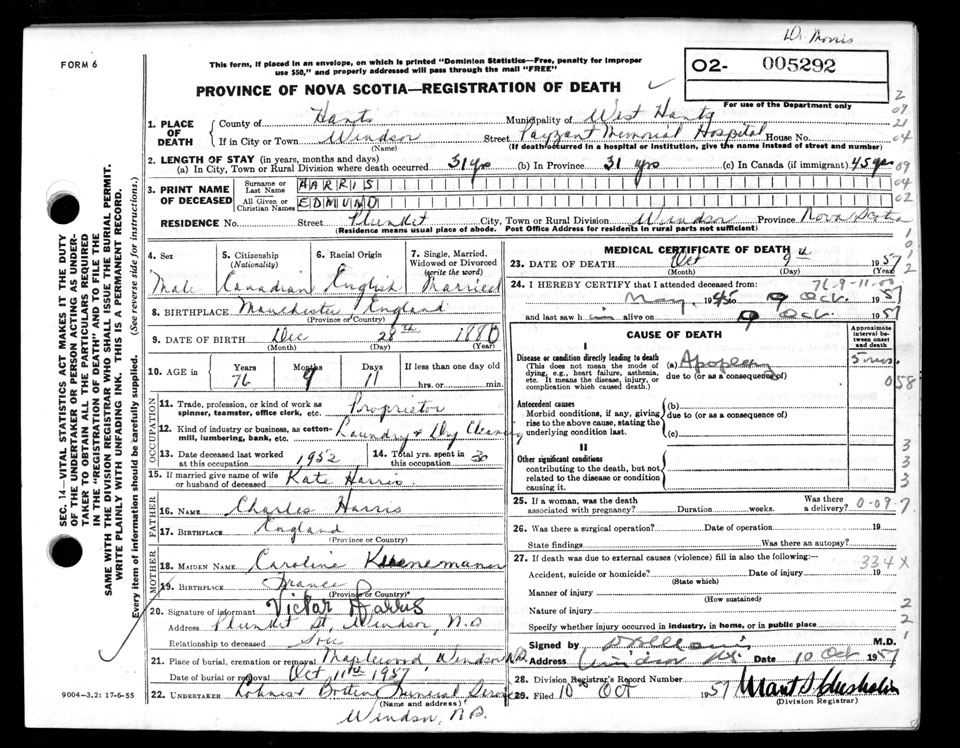 Dr. Morris
FORM 6
This form, if placed in an envelope, on which is printed "Dominion Statistics—Free, penalty for improper
use $50," and properly addressed will pass through the mail "FREE"
PROVINCE OF NOVA SCOTIA—REGISTRATION OF DEATH
O2- 005292
For use of the Department only
1. PLACE OF DEATH
County of Hants Municipality of West Hants
If in City or Town Windsor Street Payzant Memorial Hospital House No.
(Name) (If death occurred in a hospital or institution, give the name instead of street and number)
2. LENGTH OF STAY (in years, months and days)
(a) In City, Town or Rural Division where death occurred 31 yrs (b) In Province 31 yrs (c) In Canada (if immigrant) 45 yrs
3. PRINT NAME OF DECEASED
Surname or Last Name HARRIS
All Given or Christian Names EDMUND
RESIDENCE No. Street Plunkit City, Town or Rural Division Windsor Province Nova Scotia
(Residence means usual place of abode. Post Office Address for residents in rural parts not sufficient)
4. Sex
Male
5. Citizenship
(Nationality)
Canadian
6. Racial Origin
English
7. Single, Married, Widowed or Divorced
(write the word)
Married
8. BIRTHPLACE Manchester England
(Province or Country)
9. DATE OF BIRTH Dec 28th 1880
(Month) (Day) (Year)
10. AGE in Years Months Days If less than one day old
76 9 11 hrs. or min.
OCCUPATION
11. Trade, profession, or kind of work as
spinner, teamster, office clerk, etc. Proprietor
12. Kind of industry or business, as cotton-
mill, lumbering, bank, etc. Laundry & Dry Cleaning
13. Date deceased last worked
at this occupation 1952
14. Total yrs. spent in
this occupation 30
15. If married give name of wife
or husband of deceased Kate Harris
FATHER
16. NAME Charles Harris
17. BIRTHPLACE England
(Province or Country)
MOTHER
18. MAIDEN NAME Caroline
19. BIRTHPLACE France
(Province or Country)
20. Signature of informant Victor Harris
Address Plunkit St, Windsor, N.S
Relationship to deceased Son
21. Place of burial, cremation or removal Maplewood, Windsor N.S.
Date of burial or removal Oct 11th 1957
22. UNDERTAKER Funeral Service
(Name and address)
Windsor, N.S.
MEDICAL CERTIFICATE OF DEATH
23. DATE OF DEATH Oct 9th 1957
(Month) (Day) (Year)
24. I HEREBY CERTIFY that I attended deceased from:
76-9-11-00
May 1945 to 9 Oct. 1957
and last saw him alive on 9 Oct. 1957
CAUSE OF DEATH
Approximate interval between onset and death
I
Disease or condition directly leading to death
(This does not mean the mode of dying, e.g., heart failure, asthenia, etc. It means the disease, injury, or complication which caused death.)
(a) Apoplexy
due to (or as a consequence of)
058
Antecedent causes
Morbid conditions, if any, giving rise to the above cause, stating the underlying condition last.
(b)
due to (or as a consequence of)
(c)
II
Other significant conditions
contributing to the death, but not related to the disease or condition causing it.
25. If a woman, was the death
associated with pregnancy? Duration weeks. Was there a delivery? 0-09-7
26. Was there a surgical operation? Date of operation 19
State findings Was there an autopsy?
27. If death was due to external causes (violence) fill in also the following:—
334X
Accident, suicide or homicide? Date of injury 19
(State which)
Manner of injury
(How sustained)
Nature of injury
Specify whether injury occurred in industry, in home, or in public place
Signed by M.D.
Address Windsor NS. Date 10 Oct. 1957
28. Division Registrar's Record Number
29. Filed 10 Oct 1957 Grant S. Chisholm
(Division Registrar)
SEC. 14—VITAL STATISTICS ACT MAKES IT THE DUTY
OF THE UNDERTAKER OR PERSON ACTING AS UNDER-
TAKER TO OBTAIN ALL THE PARTICULARS REQUIRED
IN THE "REGISTRATION OF DEATH" AND TO FILE THE
SAME WITH THE DIVISION REGISTRAR WHO SHALL ISSUE THE BURIAL PERMIT.
WRITE PLAINLY WITH UNFADING INK. THIS IS A PERMANENT RECORD.
Every item of information should be carefully supplied. (See reverse side for instructions.)
9004-3.2: 17-6-55